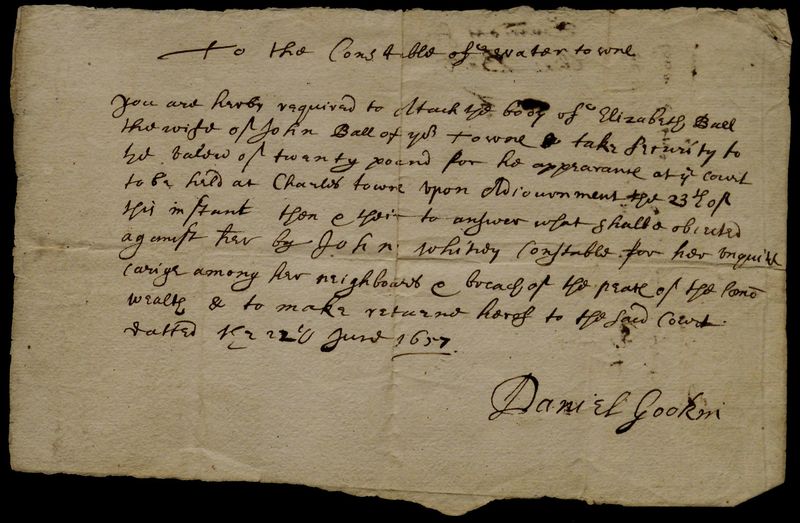 To the Constable of water towne
You are herby required to Atach ye body of Elizabeth Ball
the wife of John Ball of yor Towne & take security to
ye valew of twenty pound for he appearance at ye Court
to be held at Charles towne upon Adiournment the 23th of
this instant then & their to answer what shalbe obiected
against her by John Whitney Constable for her unquiet
carige among her neighboars & breach of the peace of the Comō
wealth & to make returne herof to the said Court
datted the 22th June 1657.
Daniel Gookin